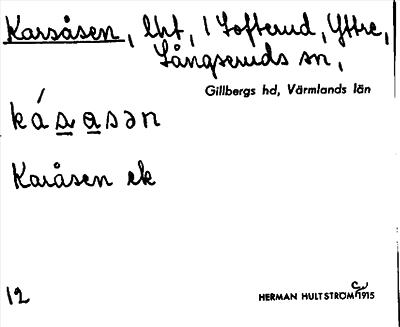 Karsåsen, lht, i Tofterud, Yttre,
Långseruds sn,
Gillbergs hd, Värmlands län
kásasən
Karåsen ek
12
HERMAN HULTSTRÖM 1915